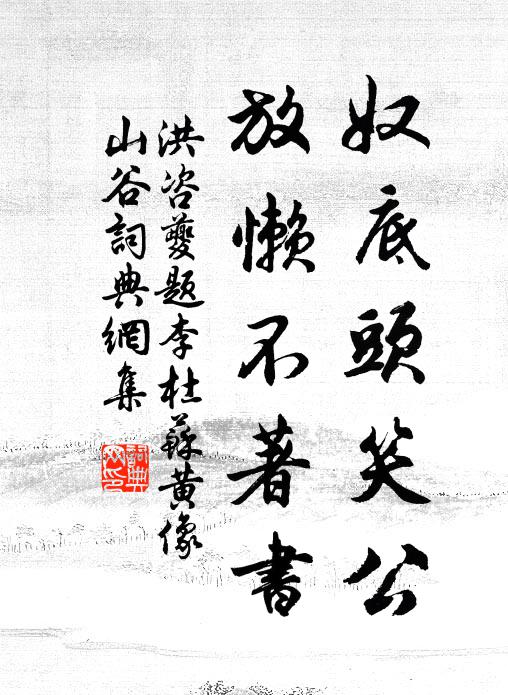 奴底頭笑公
放懶不著書
洪咨夔題李杜蘇黃像
山谷詞典網集
詞典網印